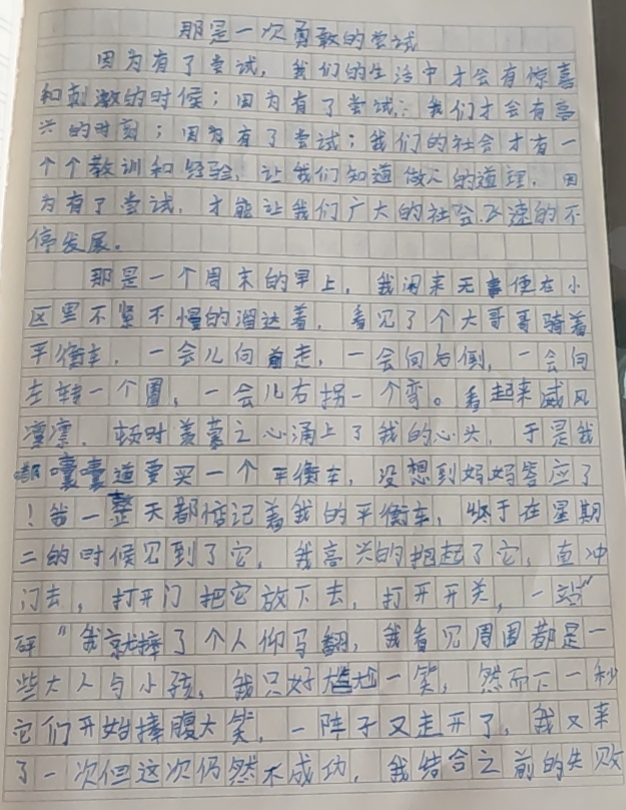 那是一次勇敢的尝试
因为有了尝试，我们的生活中才会有惊喜
和刺激的时候；因为有了尝试：我们才会有高
兴的时刻；因为有了尝试；我们的社会才有一
个个教训和经验，让我们知道做人的道理，因
为有了尝试，才能让我们广大的社会飞速的不
停发展。
那是一个周末的早上，我闲来无事便在小
区里不紧不慢的溜达着，看见了个大哥哥骑着
平衡车，一会儿向前走，一会向后倒，一会向
左转一个圈，一会儿右拐一个弯。看起来威风
凛凛，顿时羡慕之心涌上了我的心头，于是我
嘟囔囔道要买一个平衡车，没想到妈妈答应了
！我一整天都惦记着我的平衡车，终于在星期
二的时候见到了它，我高兴的抱起了它，直冲
门去，打开门把它放下去，打开开关，一站"
砰"我就摔了个人仰马翻，我看见周围都是一
些大人与小孩，我只好尴尬一笑，然而下一秒
它们开始捧腹大笑，一阵子又走开了，我又来
了一次但这次仍然木成功，我结合之前的失败